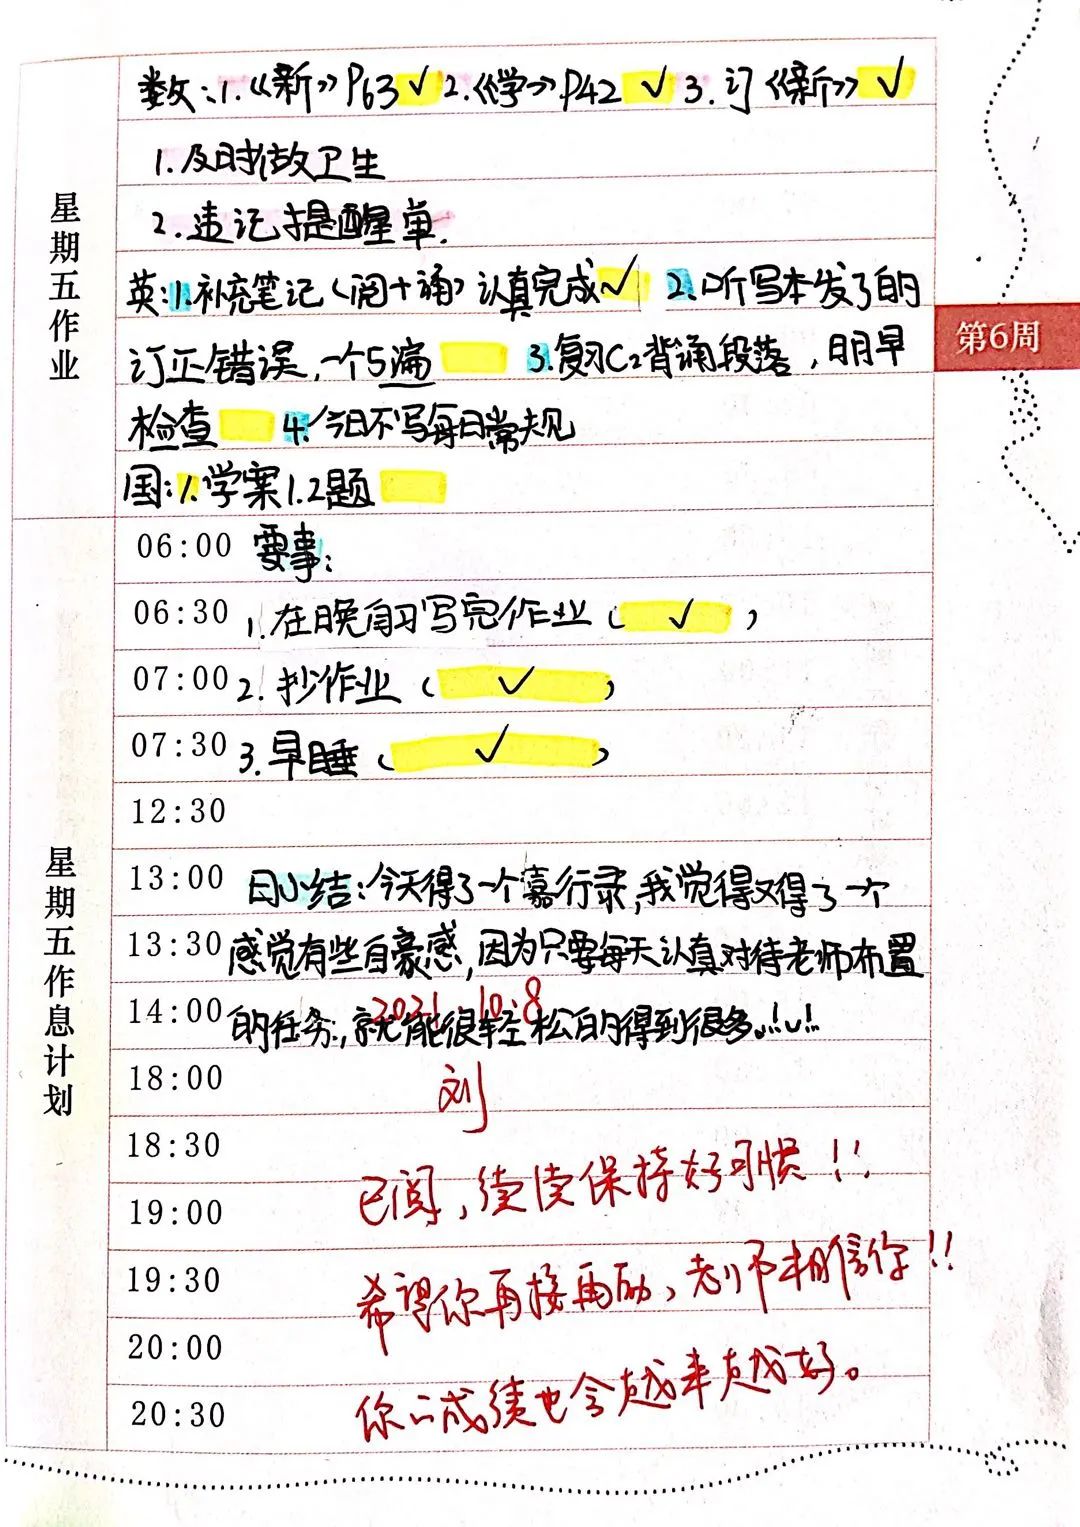 数:1.《新》P63 ✓ 2.《学》P42 ✓ 3.订《新》 ✓
1.及时做卫生
2.速记提醒单.
星期五作业
英:1.补充笔记(阅+诵)认真完成 ✓ 2.听写本发了的
订正错误,一个5遍 3.复习C2背诵段落,明早
第6周
检查 4.今日不写每日常规
国:1.学案1.2题
06:00 要事:
06:30 1.在晚自习写完作业( ✓ )
07:00 2.抄作业( ✓ )
07:30 3.早睡( ✓ )
12:30
星期五作息计划
13:00 日小结:今天得了一个嘉行录,我觉得又得了一个
13:30 感觉有些自豪感,因为只要每天认真对待老师布置
14:00 的任务,就能很轻松的得到很多。
2021.10.8
18:00 刘
18:30 已阅,继续保持好习惯!!
19:00
19:30 希望你再接再励,老师相信你!!
20:00
20:30 你的成绩也会越来越好。